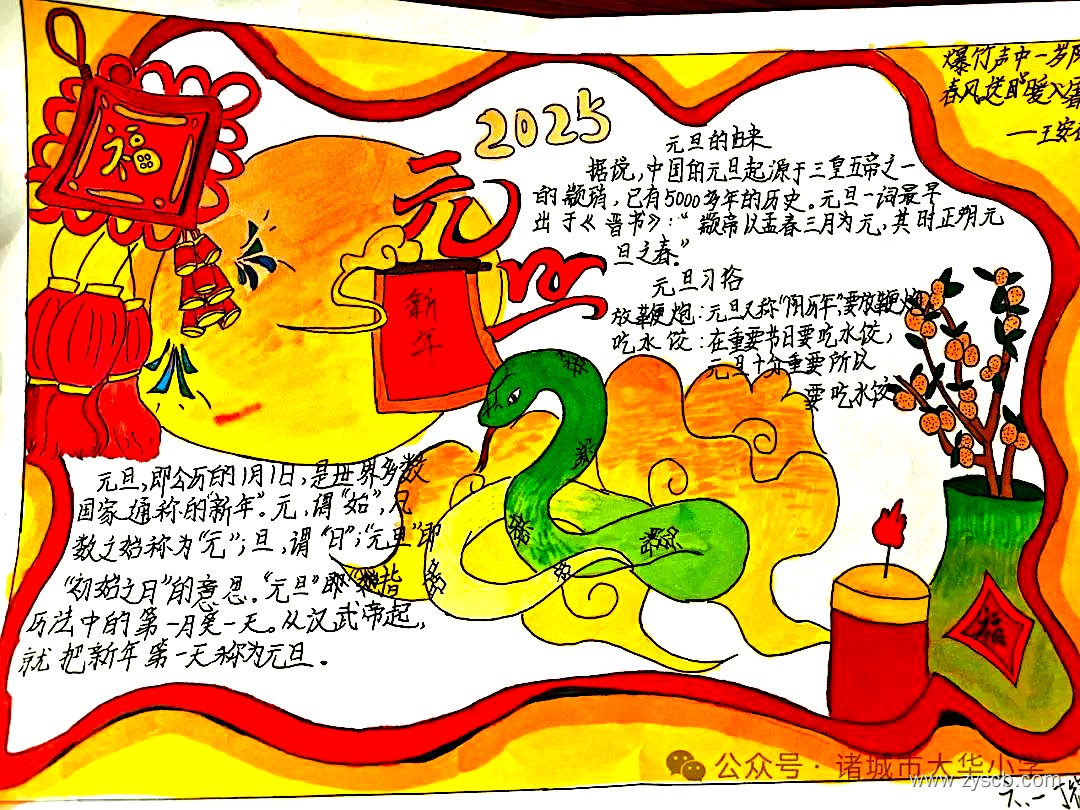 福
2025
元旦
新年
爆竹声中一岁
春风送暖入
——王安
元旦的由来
据说,中国的元旦起源于三皇五帝之一
的颛顼,已有5000多年的历史。元旦一词最早
出于《晋书》:“颛帝以孟春三月为元,其时正朔元
旦之春。”
元旦习俗
放鞭炮:元旦又称“阳历年”,要放鞭炮
吃水饺:在重要节日要吃水饺,
元旦十分重要所以
要吃水饺
元旦,即公历的1月1日,是世界多数
国家通称的“新年”。元,谓“始”,凡
数之始称为“元”;旦,谓“日”;“元旦”即
“初始之日”的意思。“元旦”即指
历法中的第一月第一天。从汉武帝起,
就把新年第一天称为元旦。
福
公众号·诸城市大华小学
www.zyscb.com